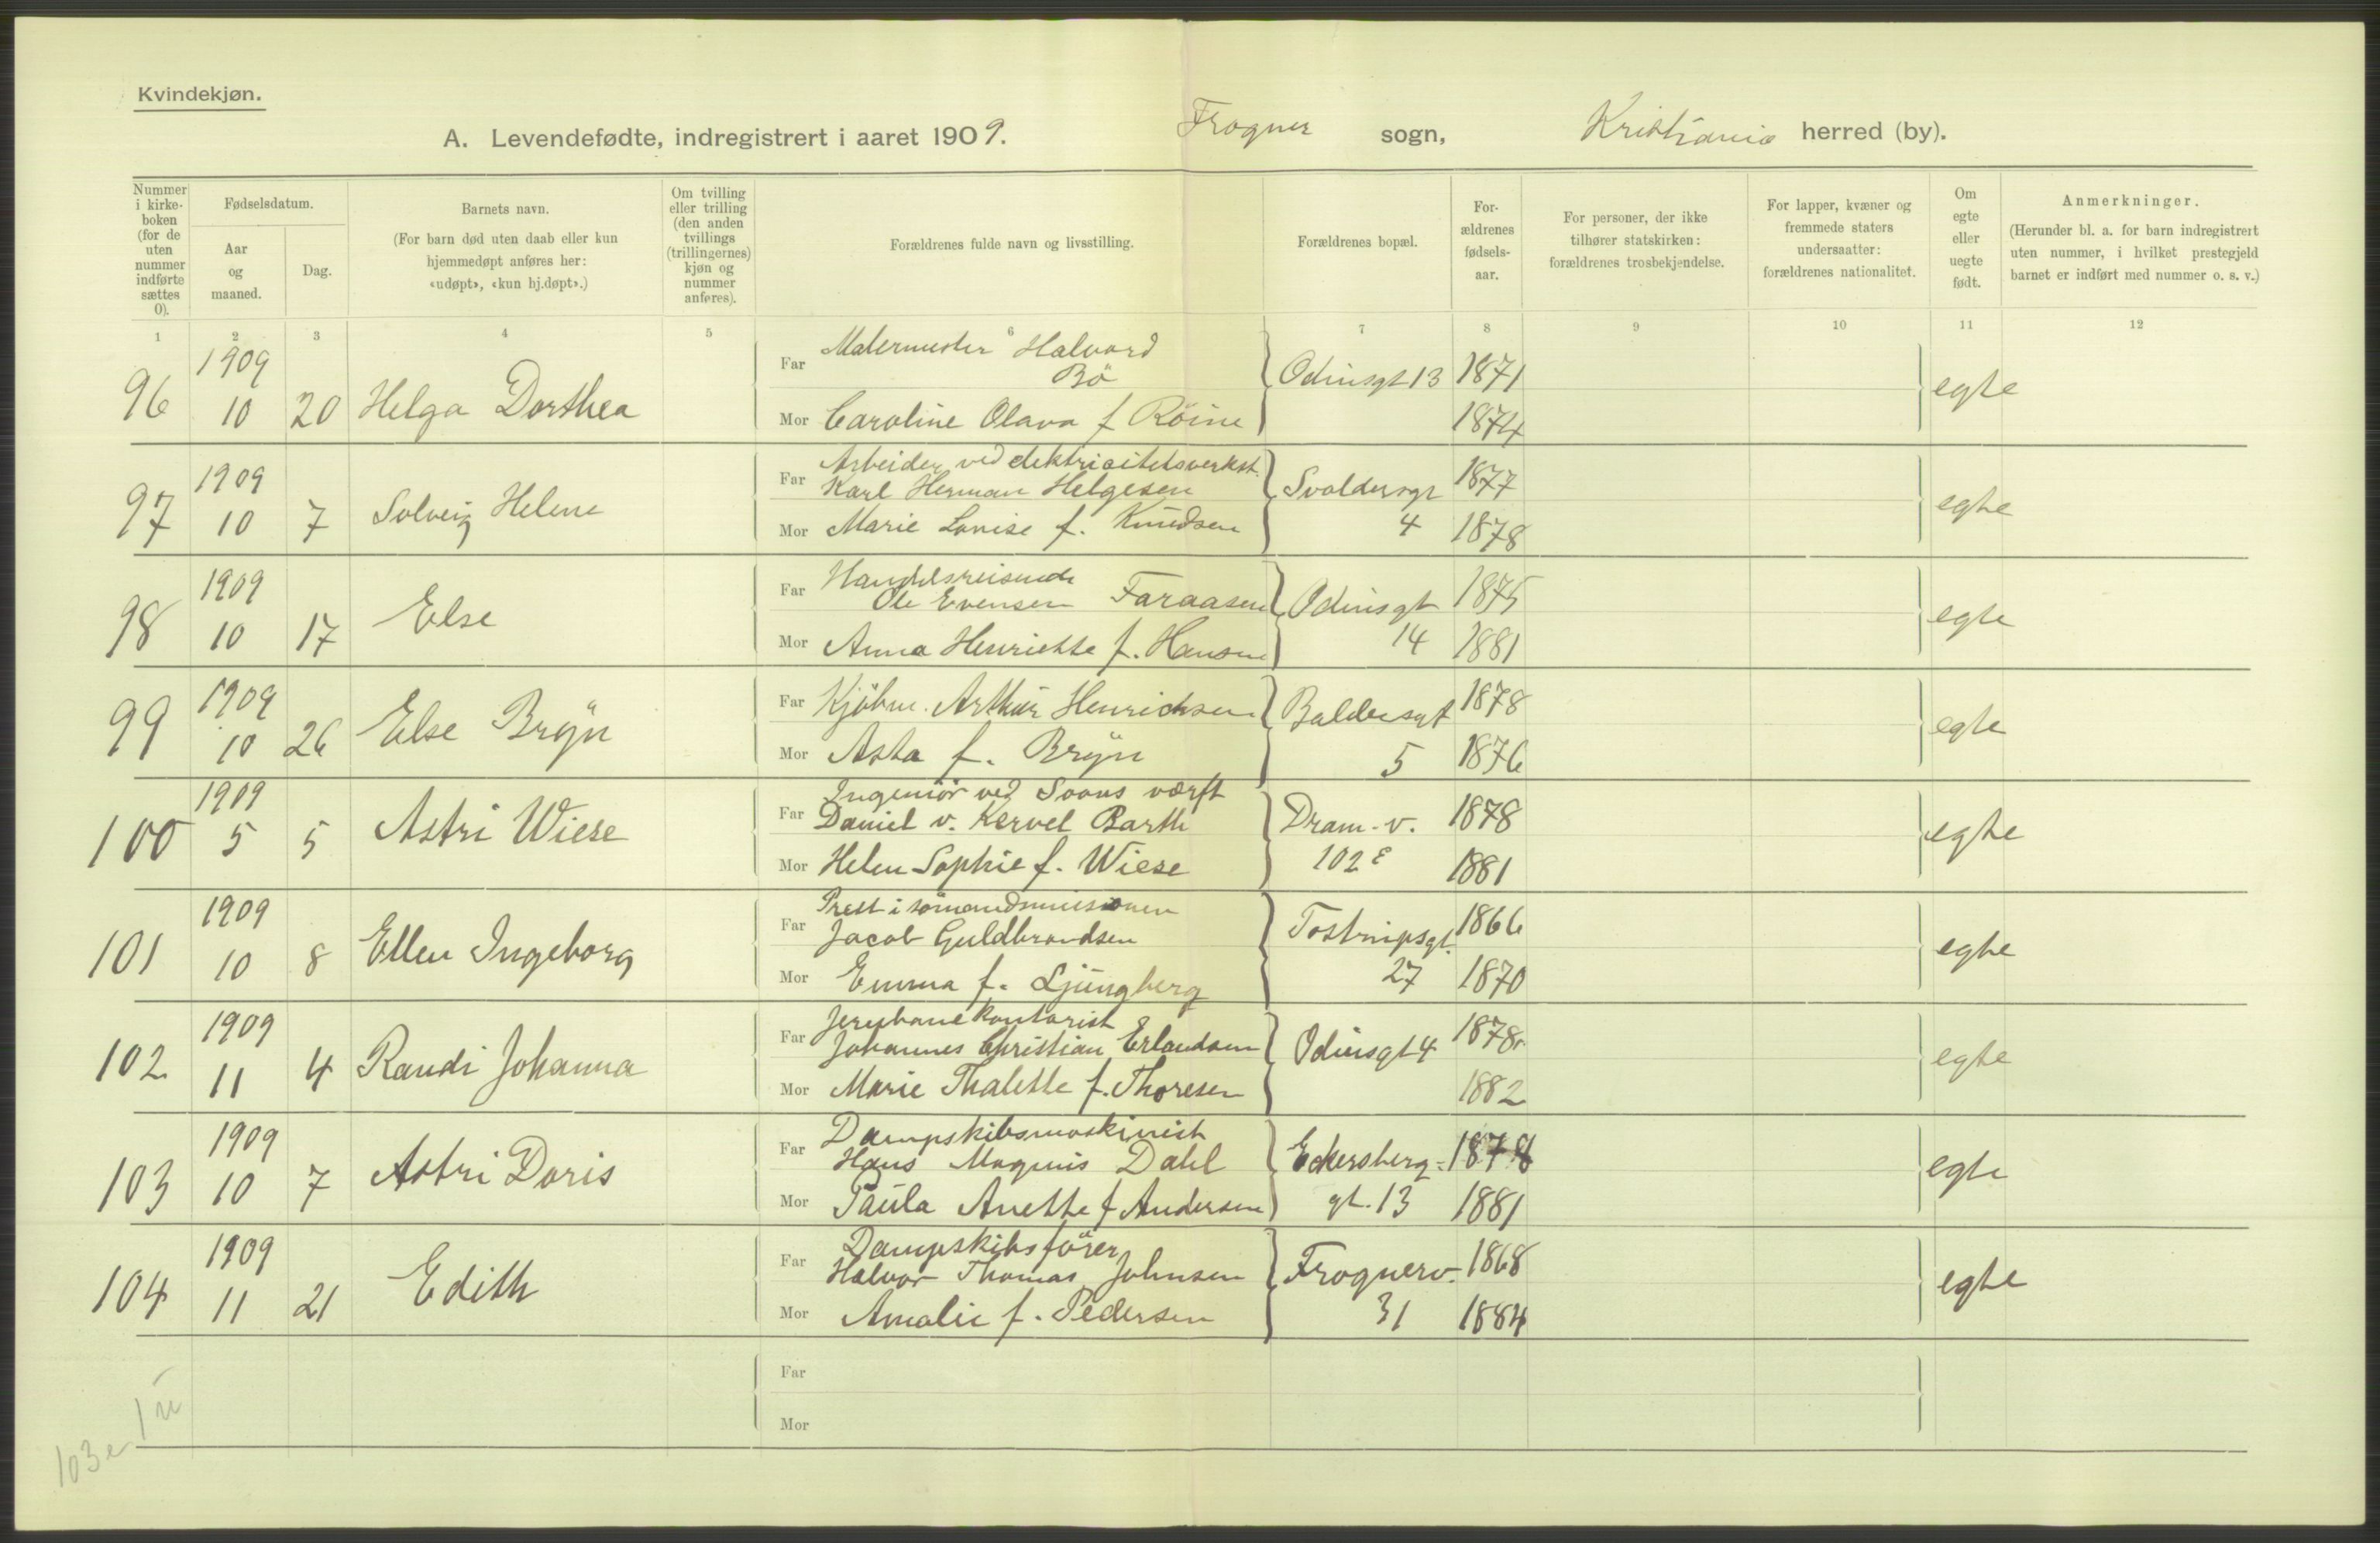 Kvindekjøn.
A. Levendefødte, indregistrert i aaret 1909. Frogner sogn, Kristiania herred (by).
Nummer i kirke-boken (for de uten nummer indførte sættes 0).
Fødselsdatum.
Aar og maaned.
Dag.
Barnets navn.
(For barn død uten daab eller kun hjemmedøpt anføres her: «udøpt», «kun hj.døpt».)
Om tvilling eller trilling (den anden tvillings (trillingernes) kjøn og nummer anføres).
Forældrenes fulde navn og livsstilling.
Forældrenes bopæl.
For-ældrenes fødsels-aar.
For personer, der ikke tilhører statskirken: forældrenes trosbekjendelse.
For lapper, kvæner og fremmede staters undersaatter: forældrenes nationalitet.
Om egte eller uegte født.
Anmerkninger.
(Herunder bl. a. for barn indregistrert uten nummer, i hvilket prestegjeld barnet er indført med nummer o. s. v.)
1 2 3 4 5 6 7 8 9 10 11 12
96 1909 10 20 Helga Dorthea
Far Malermester Halvard Bö Odinsgt 13 1871 egte
Mor Caroline Olava f Röine 1874
97 1909 10 7 Solveig Helene
Far Arbeider ved elektricitetsverkst. Karl Herman Helgesen Svoldersgt 1877 egte
Mor Marie Lovise f. Knudsen 4 1878
98 1909 10 17 Else
Far Handelsreisende Ole Evensen Faraasen Odinsgt 1875 egte
Mor Anna Henriette f. Hansen 14 1881
99 1909 10 26 Else Bryn
Far Kjöbm. Arthur Henrichsen Baldersgt 1878 egte
Mor Asta f. Bryn 5 1876
100 1909 5 5 Astri Wiese
Far Ingeniör ved Soons værft Daniel v. Kervel Barth Dram.v. 1878 egte
Mor Helen Sophie f. Wiese 102 E 1881
101 1909 10 8 Ellen Ingeborg
Far Prest i sömandsmissionen Jacob Guldbrandsen Tostrupsgt. 1866 egte
Mor Emma f. Ljungberg 27 1870
102 1909 11 4 Randi Johanna
Far Jernbanekontorist Johannes Christian Erlandsen Odinsgt 4 1878 egte
Mor Marie Thalette f. Thoresen 1882
103 1909 10 7 Astri Doris
Far Dampskibsmaskinist Hans Magnus Dahl Eckersberg- 1878 egte
Mor Paula Anette f Andersen gt. 13 1881
104 1909 11 21 Edith
Far Dampskibsförer Halvor Thomas Johnsen Frognerv. 1868 egte
Mor Amalie f. Pedersen 31 1884
Far
Mor
103 e